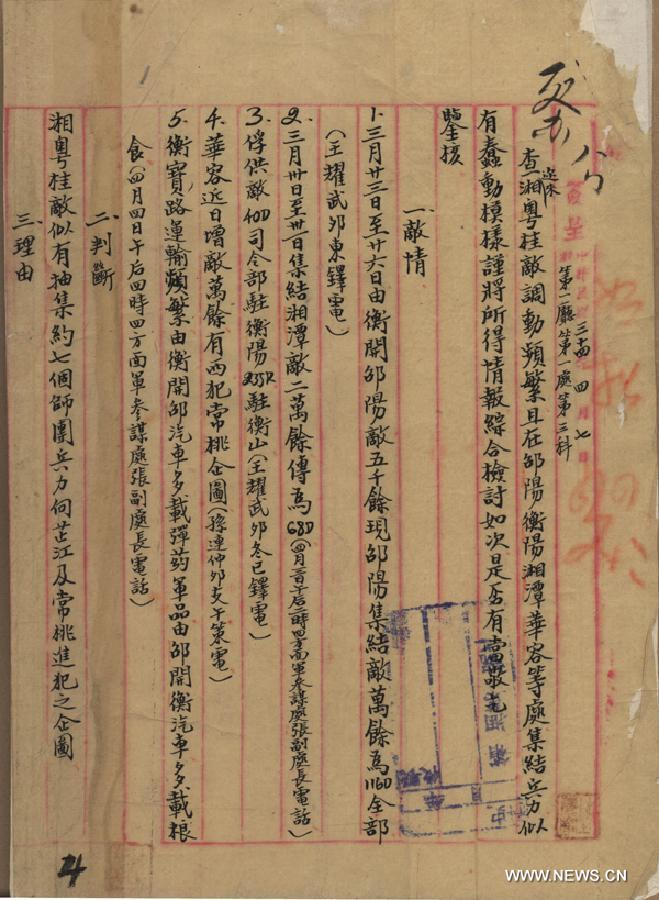 簽呈
三十四 四月七日
第一廳第一處第三科
查近來湘粵桂敵調動頻繁且在邵陽衡陽湘潭華容等處集結兵力似
有蠢動模樣謹將所得情報綜合檢討如次是否有當敬乞
鑒核
一、敵情
1.三月廿三日至廿六日由衡開邵陽敵五千餘現邵陽集結敵萬餘為116D全部
(王耀武卯東鐸電)
2.三月卅日至卅一日集結湘潭敵二萬餘傳為68D(四月二日午后二時四方面軍參謀處張副處長電話)
3.俘供敵40D司令部駐衡陽235R駐衡山(王耀武卯冬巳鐸電)
4.華容近日增敵萬餘有西犯常桃企圖(孫連仲卯支午策電)
5.衡寶路運輸頻繁由衡開邵汽車多載彈葯軍品由邵開衡汽車多載粮
食(四月四日午后四時四方面軍參謀處張副處長電話)
二、判斷
湘粵桂敵似有抽集約七個師團兵力向芷江及常桃進犯之企圖
三、理由
4
www.NEWS.CN